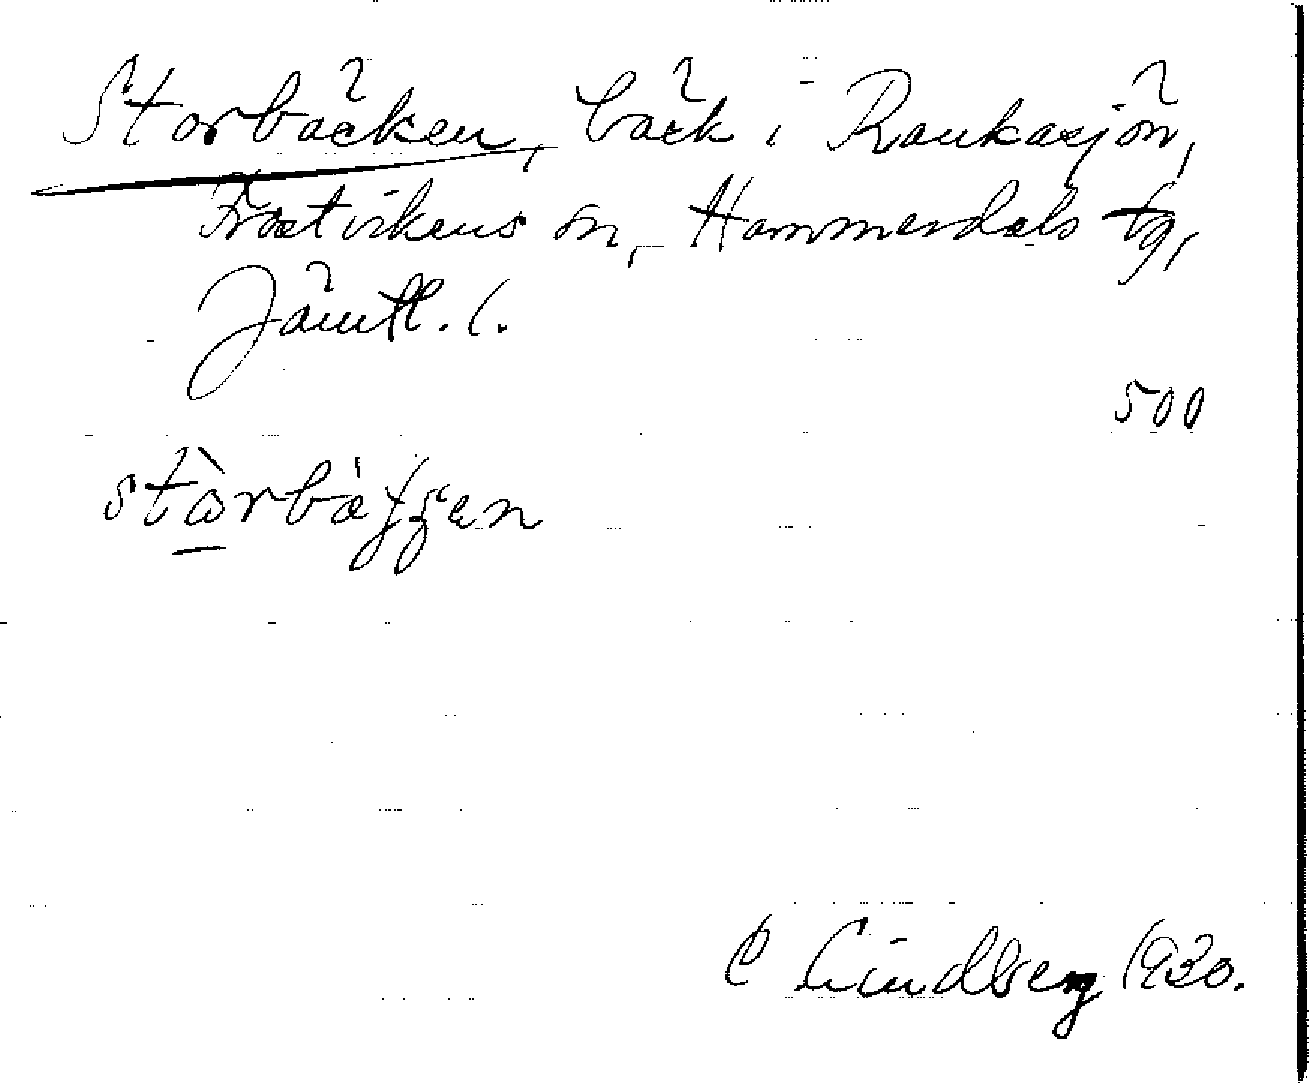 Storbäcken, bäck i Raukasjön,
Frostvikens sn, Hammerdals tg,
Jämtl. l.
500
C Lindberg 1930.